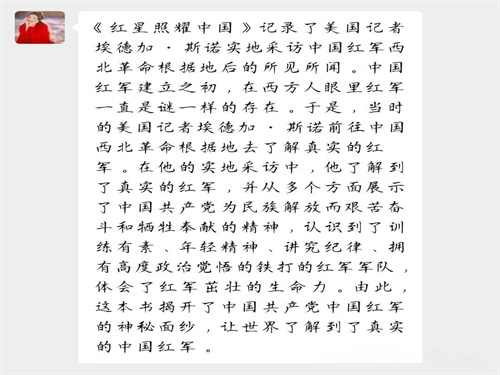 《红星照耀中国》记录了美国记者
埃德加·斯诺实地采访中国红军西
北革命根据地后的所见所闻。中国
红军建立之初，在西方人眼里红军
一直是谜一样的存在。于是，当时
的美国记者埃德加·斯诺前往中国
西北革命根据地去了解真实的红
军。在他的实地采访中，他了解到
了真实的红军，并从多个方面展示
了中国共产党为民族解放而艰苦奋
斗和牺牲奉献的精神，认识到了训
练有素、年轻精神、讲究纪律、拥
有高度政治觉悟的铁打的红军军队，
体会了红军茁壮的生命力。由此，
这本书揭开了中国共产党中国红军
的神秘面纱，让世界了解到了真实
的中国红军。